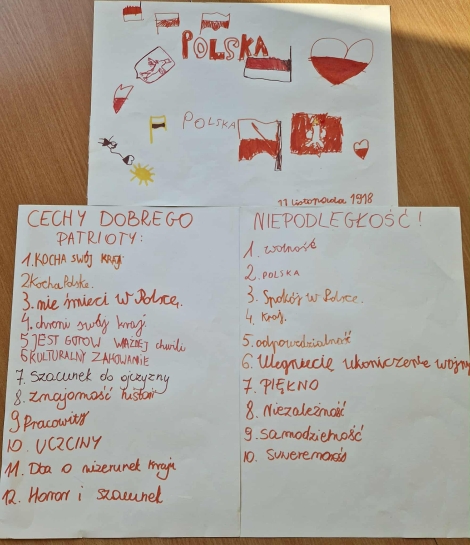 POLSKA
POLSKA
11 listopada 1918
CECHY DOBREGO
PATRIOTY:
1. KOCHA SWÓJ KRAJ
2 Kocha Polskę.
3. nie śmieci w Polsce,
4. chroni swój kraj
5 JEST GOTÓW W każdej chwili
6 KULTURALNY ZAHOWANIE
7. Szacunek do ojczyzny
8. Znajomość historii
9 Pracowity
10. UCZCINY
11. Dba o wizerunek kraju
12. Honor i szacunek
NIEPODLEGŁOŚĆ!
1. wolność
2. POLSKA
3. Spokój w Polsce.
4. Kraj.
5. odpowdzialność
6. ukończenie wojny
7. PIĘKNO
8. Niezależność
9. samodzielność
10.